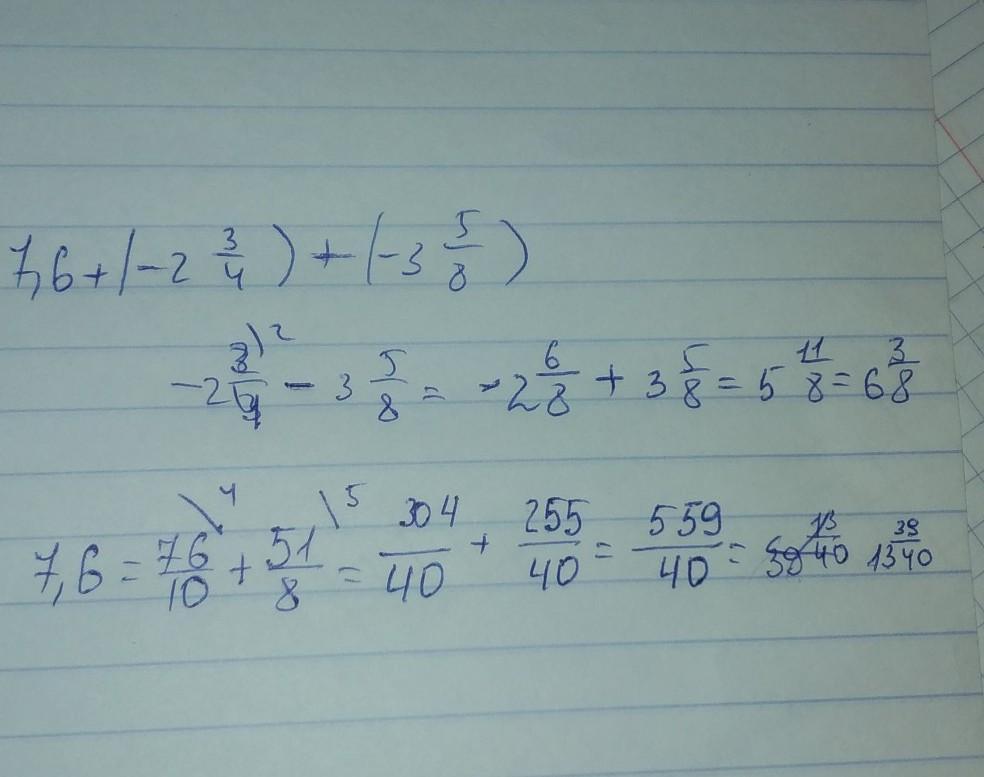 7,6 + (-2 3/4) + (-3 5/8)
-2 3/4 \2 - 3 5/8 = -2 6/8 + 3 5/8 = 5 11/8 = 6 3/8
7,6 = 76/10 \4 + 51/8 \5 = 304/40 + 255/40 = 559/40 = 13 39/40